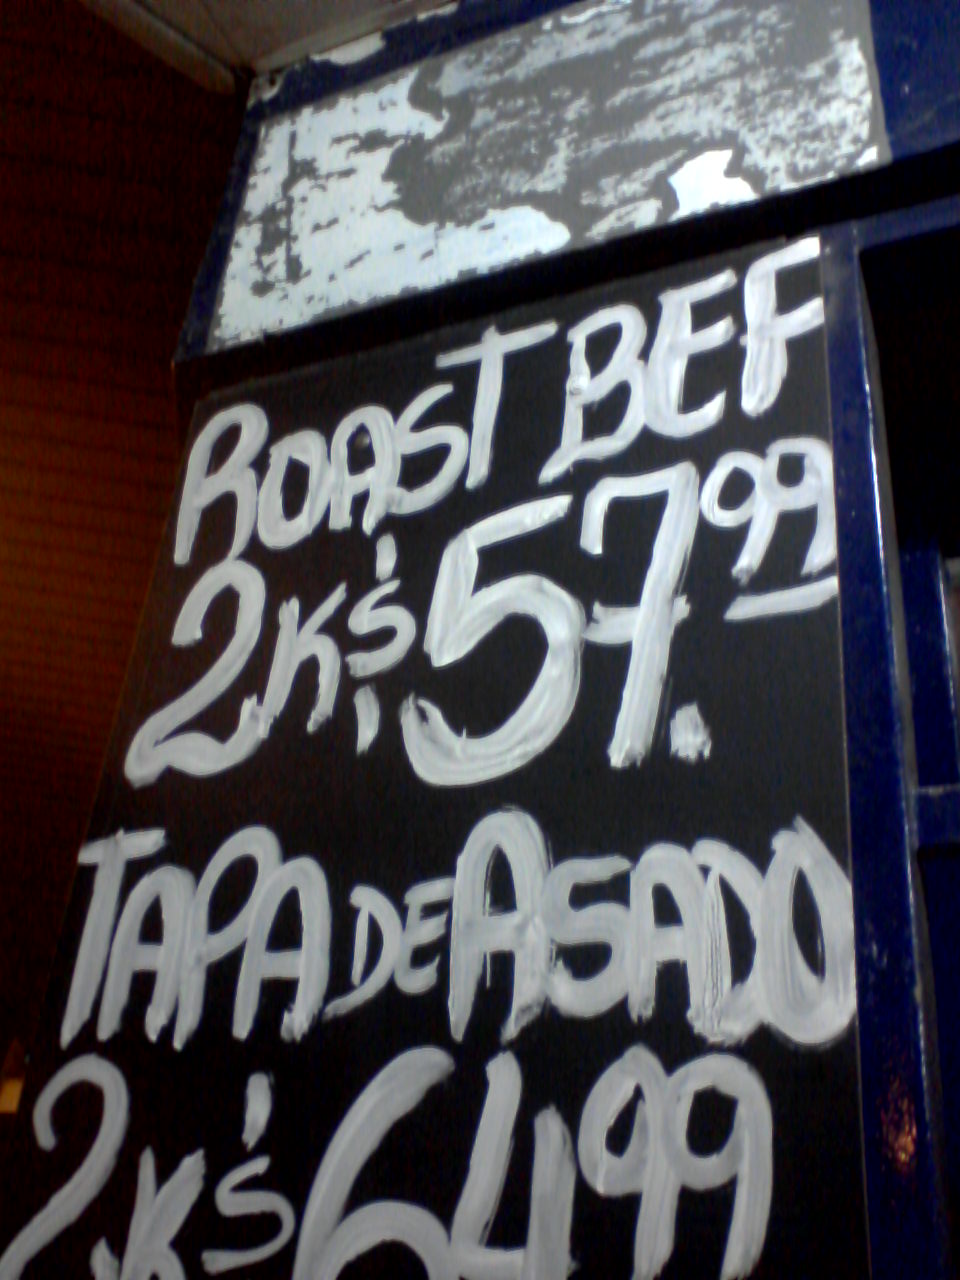 ROAST BEF
2K $ 57.99
TAPA DE ASADO
2K $ 6499